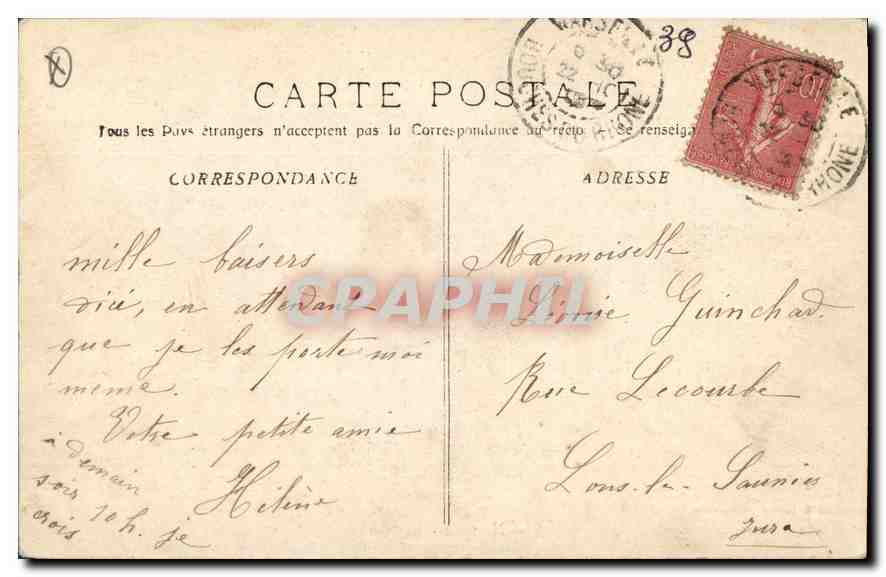 39
MARSEILLE
BOUCHES DU RHONE
MARSEILLE
RHONE
10
CARTE POSTALE
Tous les Pays étrangers n'acceptent pas la Correspondance au recto se renseign
CORRESPONDANCE
ADRESSE
mille baisers
d'ici, en attendant
que je les porte moi
même.
Votre petite amie
Hélène
à demain
soir 10 h. je
crois
Mademoiselle
Léonie Guinchard
Rue Lecourbe
Lons-le-Saunier
Jura
CPAPHIL